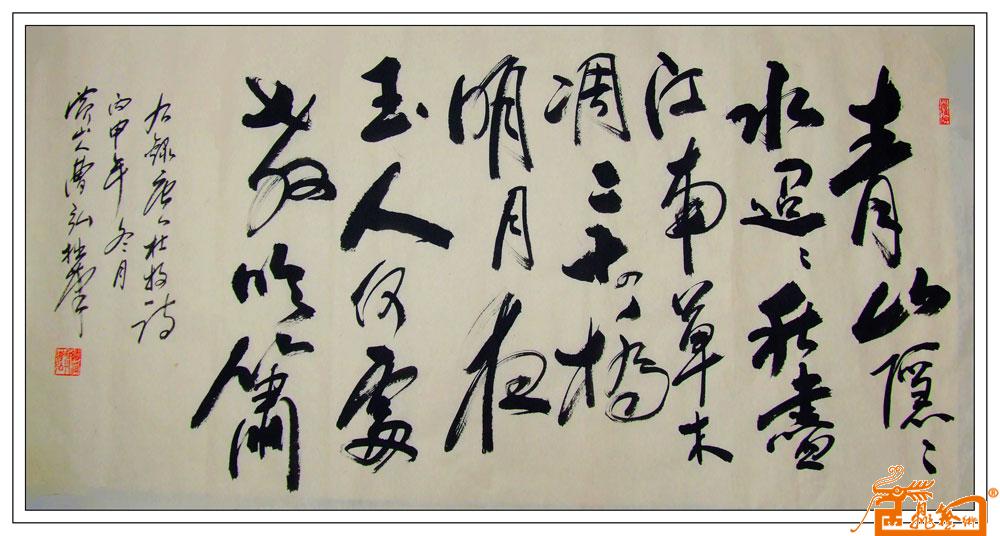 青山隐隐
水迢迢秋尽
江南草木
凋二十四桥
明月夜
玉人何处
教吹箫
右录唐人杜牧诗
丙申年冬月